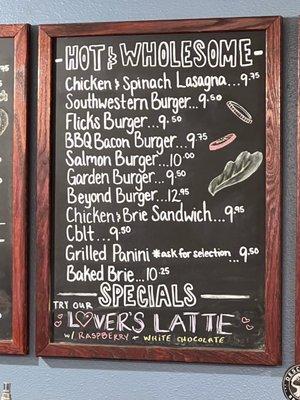 - HOT & WHOLESOME -
Chicken & Spinach Lasagna...9.75
Southwestern Burger...9.50
Flicks Burger...9.50
BBQ Bacon Burger...9.75
Salmon Burger...10.00
Garden Burger...9.50
Beyond Burger...12.95
Chicken & Brie Sandwich...9.95
Cblt...9.50
Grilled Panini *ask for selection...9.50
Baked Brie...10.25
SPECIALS
TRY OUR
LOVER'S LATTE
W/ RASPBERRY + WHITE CHOCOLATE